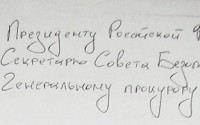 Президенту Российской Ф
Секретарю Совета Безоп
Генеральному прокурору